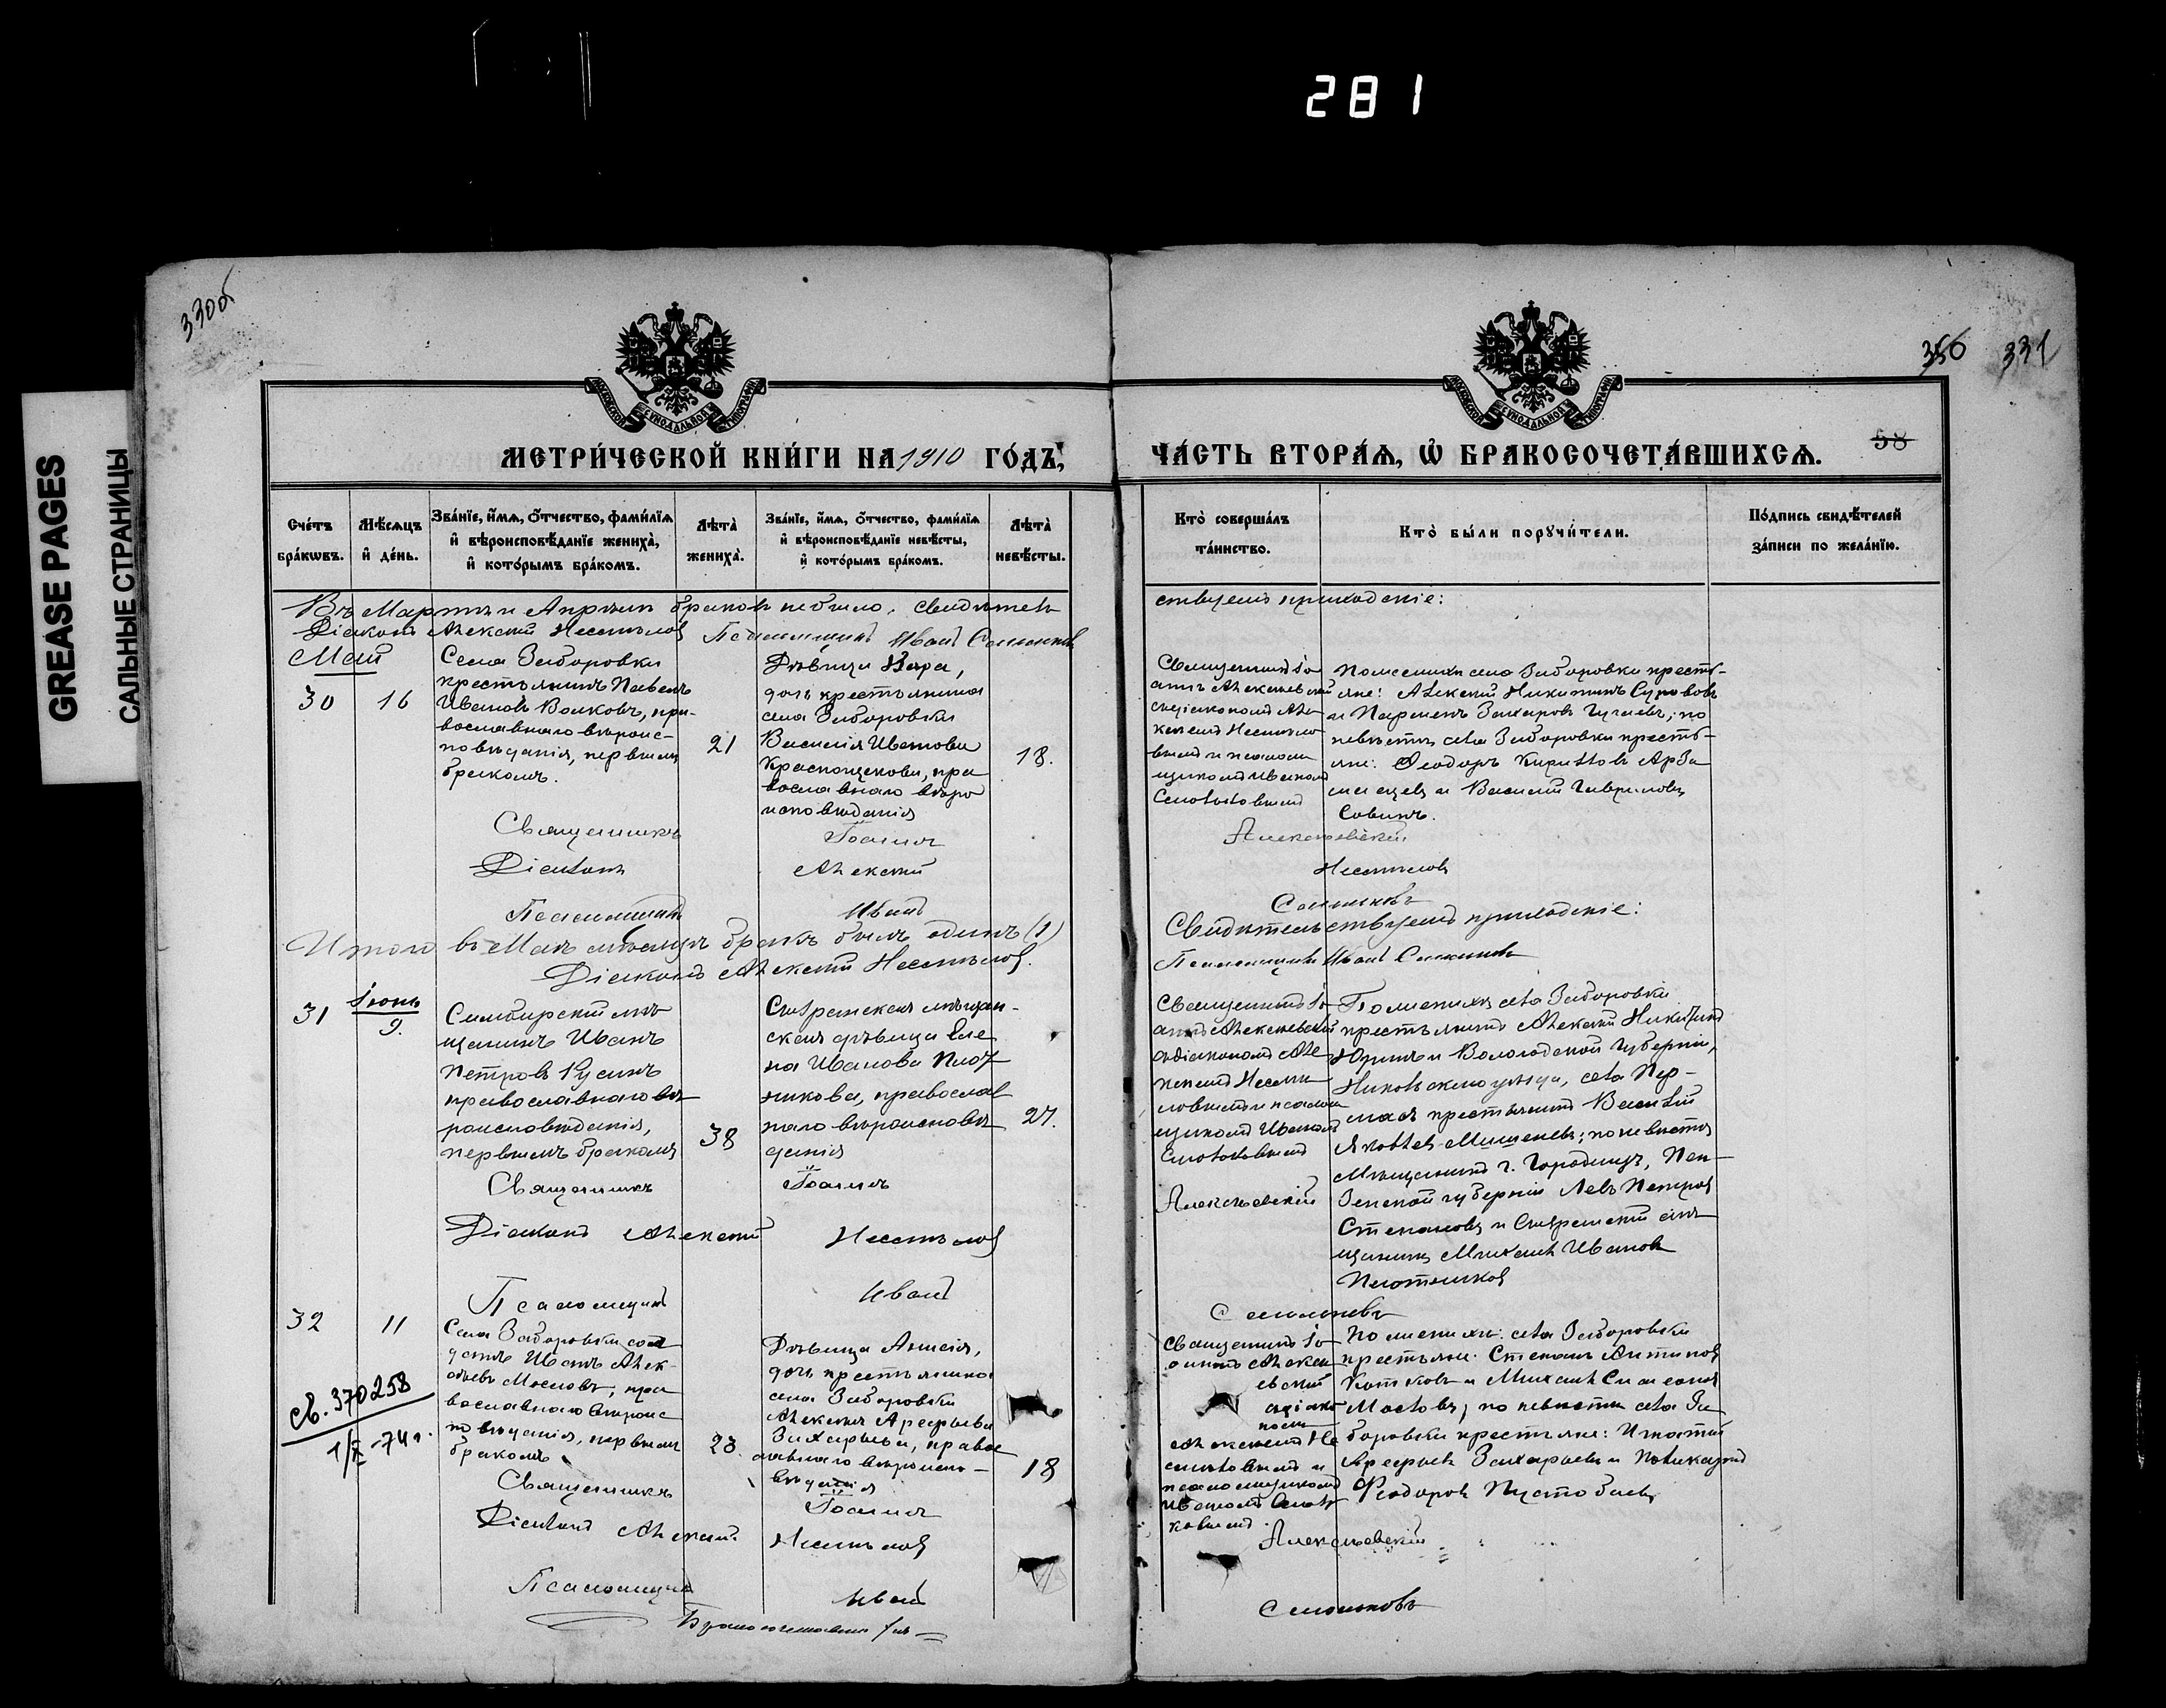 281
GREASE PAGES
САЛЬНЫЕ СТРАНИЦЫ
330об
356 331
58
МЕТРИ́ЧЕСКОЙ КНИ́ГИ НА 1910 ГО́ДЪ,
ЧА́СТЬ ВТОРА́Ѧ, Ѽ БРАКОСОЧЕТА́ВШИХСѦ.
Сче́тъ бра́кѡвъ.
Мѣ́сѧцъ и҆ де́нь.
Зва́нїе, и҆́мѧ, ѻ҆́тчество, фами́лїѧ и҆ вѣроисповѣ́данїе жениха̀, и҆ кото́рымъ бра́комъ.
Лѣта̀ жениха̀.
Зва́нїе, и҆́мѧ, ѻ҆́тчество, фами́лїѧ и҆ вѣроисповѣ́данїе невѣ́сты, и҆ кото́рымъ бра́комъ.
Лѣта̀ невѣ́сты.
Кто̀ соверша́лъ та́инство.
Кто̀ бы́ли порꙋчи́тели.
По́дпись свидѣ́телей за́писи по жела́нїю.
Въ Мартѣ и Апрѣлѣ браковъ не было. Свидѣтель
ствуемъ приходскіе:
Діаконъ Алексѣй
Псаломщикъ Иванъ
Май
30
16
Села Заборовки
крестьянинъ Павелъ
Ивановъ Волковъ, пра-
вославнаго вѣроис-
повѣданія, первымъ
бракомъ.
21
Дѣвица Вѣра,
дочь крестьянина
села Заборовки
Василія Иванова
Краснощекова, пра
вославнаго вѣро
исповѣданія
18.
Священникъ Іо
аннъ Алексѣевскій
съ діакономъ Але
ксѣемъ
вымъ и псалом
щикомъ Иваномъ
По женихѣ села Заборовки кресть-
яне: Алексѣй Никитинъ Сурововъ
и Парменъ Захаровъ по
невѣстѣ села Заборовки кресть-
яне: Ѳеодоръ Кирилловъ Арза
масцевъ и Василій Гавриловъ
Савинъ.
Священникъ Іоаннъ Алексѣевскій
Діаконъ Алексѣй
Псаломщикъ Иванъ
Итого въ Маѣ мѣсяцѣ бракъ былъ одинъ (1)
Свидѣтельствуемъ приходскіе:
Діаконъ Алексѣй
Псаломщикъ Иванъ
31
Іюнь
9.
Симбирскій мѣ
щанинъ Иванъ
Петровъ Русинъ
православнаго вѣ
роисповѣданія,
первымъ бракомъ
38
Сызранская мѣщан-
ская дѣвица Еле
на Иванова Плот
никова, православ
наго вѣроисповѣ
данія
27.
Священникъ Іо
аннъ Алексѣевскій
съ діакономъ Але
ксѣемъ
ловымъ и псалом
щикомъ Иваномъ
По женихѣ села Заборовки
крестьянинъ Алексѣй Никитинъ
Юринъ и Вологодской губерніи,
Никольскаго уѣзда, села Пер-
маса крестьянинъ Василій
Яковлев Мишеневъ; по невѣстѣ
Мѣщанинъ г. Городищъ, Пен-
зенской губерніи Левъ Петровъ
Степановъ и Сызранскій мѣ
щанинъ Михаилъ Ивановъ
Плотниковъ
Священникъ Іоаннъ Алексѣевскій
Діаконъ Алексѣй
Псаломщикъ Иванъ
32
11
св. 370258
1/IX-74 г.
Села Заборовки сол
датъ Иванъ Алек-
сѣевъ Масловъ, пра
вославнаго вѣроис
повѣданія, первымъ
бракомъ
23.
Дѣвица Анисія,
дочь крестьянина
села Заборовки
Алексѣя Арефьева
Захарьева, право
славнаго вѣроиспо-
вѣданія
18
Священникъ Іо
аннъ Алексѣ
евскій
съ діако
номъ
Алексѣемъ Не
ловымъ и
псаломщикомъ
Иваномъ
ковымъ.
По женихѣ: села Заборовки
крестьяне: Степанъ Антиповъ
Котковъ и Михаилъ Симеоновъ
Масловъ; по невѣстѣ села За
боровки крестьяне: Игнатій
Арефьевъ Захарьевъ и Поликарпъ
Ѳеодоровъ Пустобаевъ
Священникъ Іоаннъ Алексѣевскій
Діаконъ Алексѣй
Псаломщикъ Иванъ